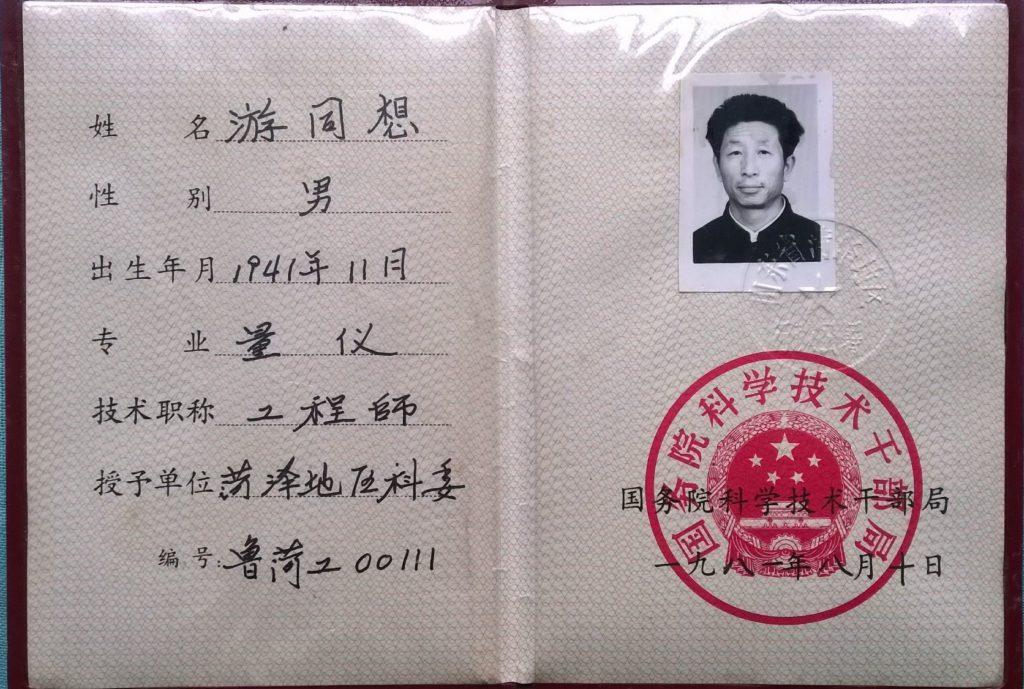 姓名 游同想
性别 男
出生年月 1941年11月
专业 量仪
技术职称 工程師
授予单位 菏泽地区科委
编号:鲁菏工00111
国务院科学技术干部局
国务院科学技术干部局
一九八一年八月十日